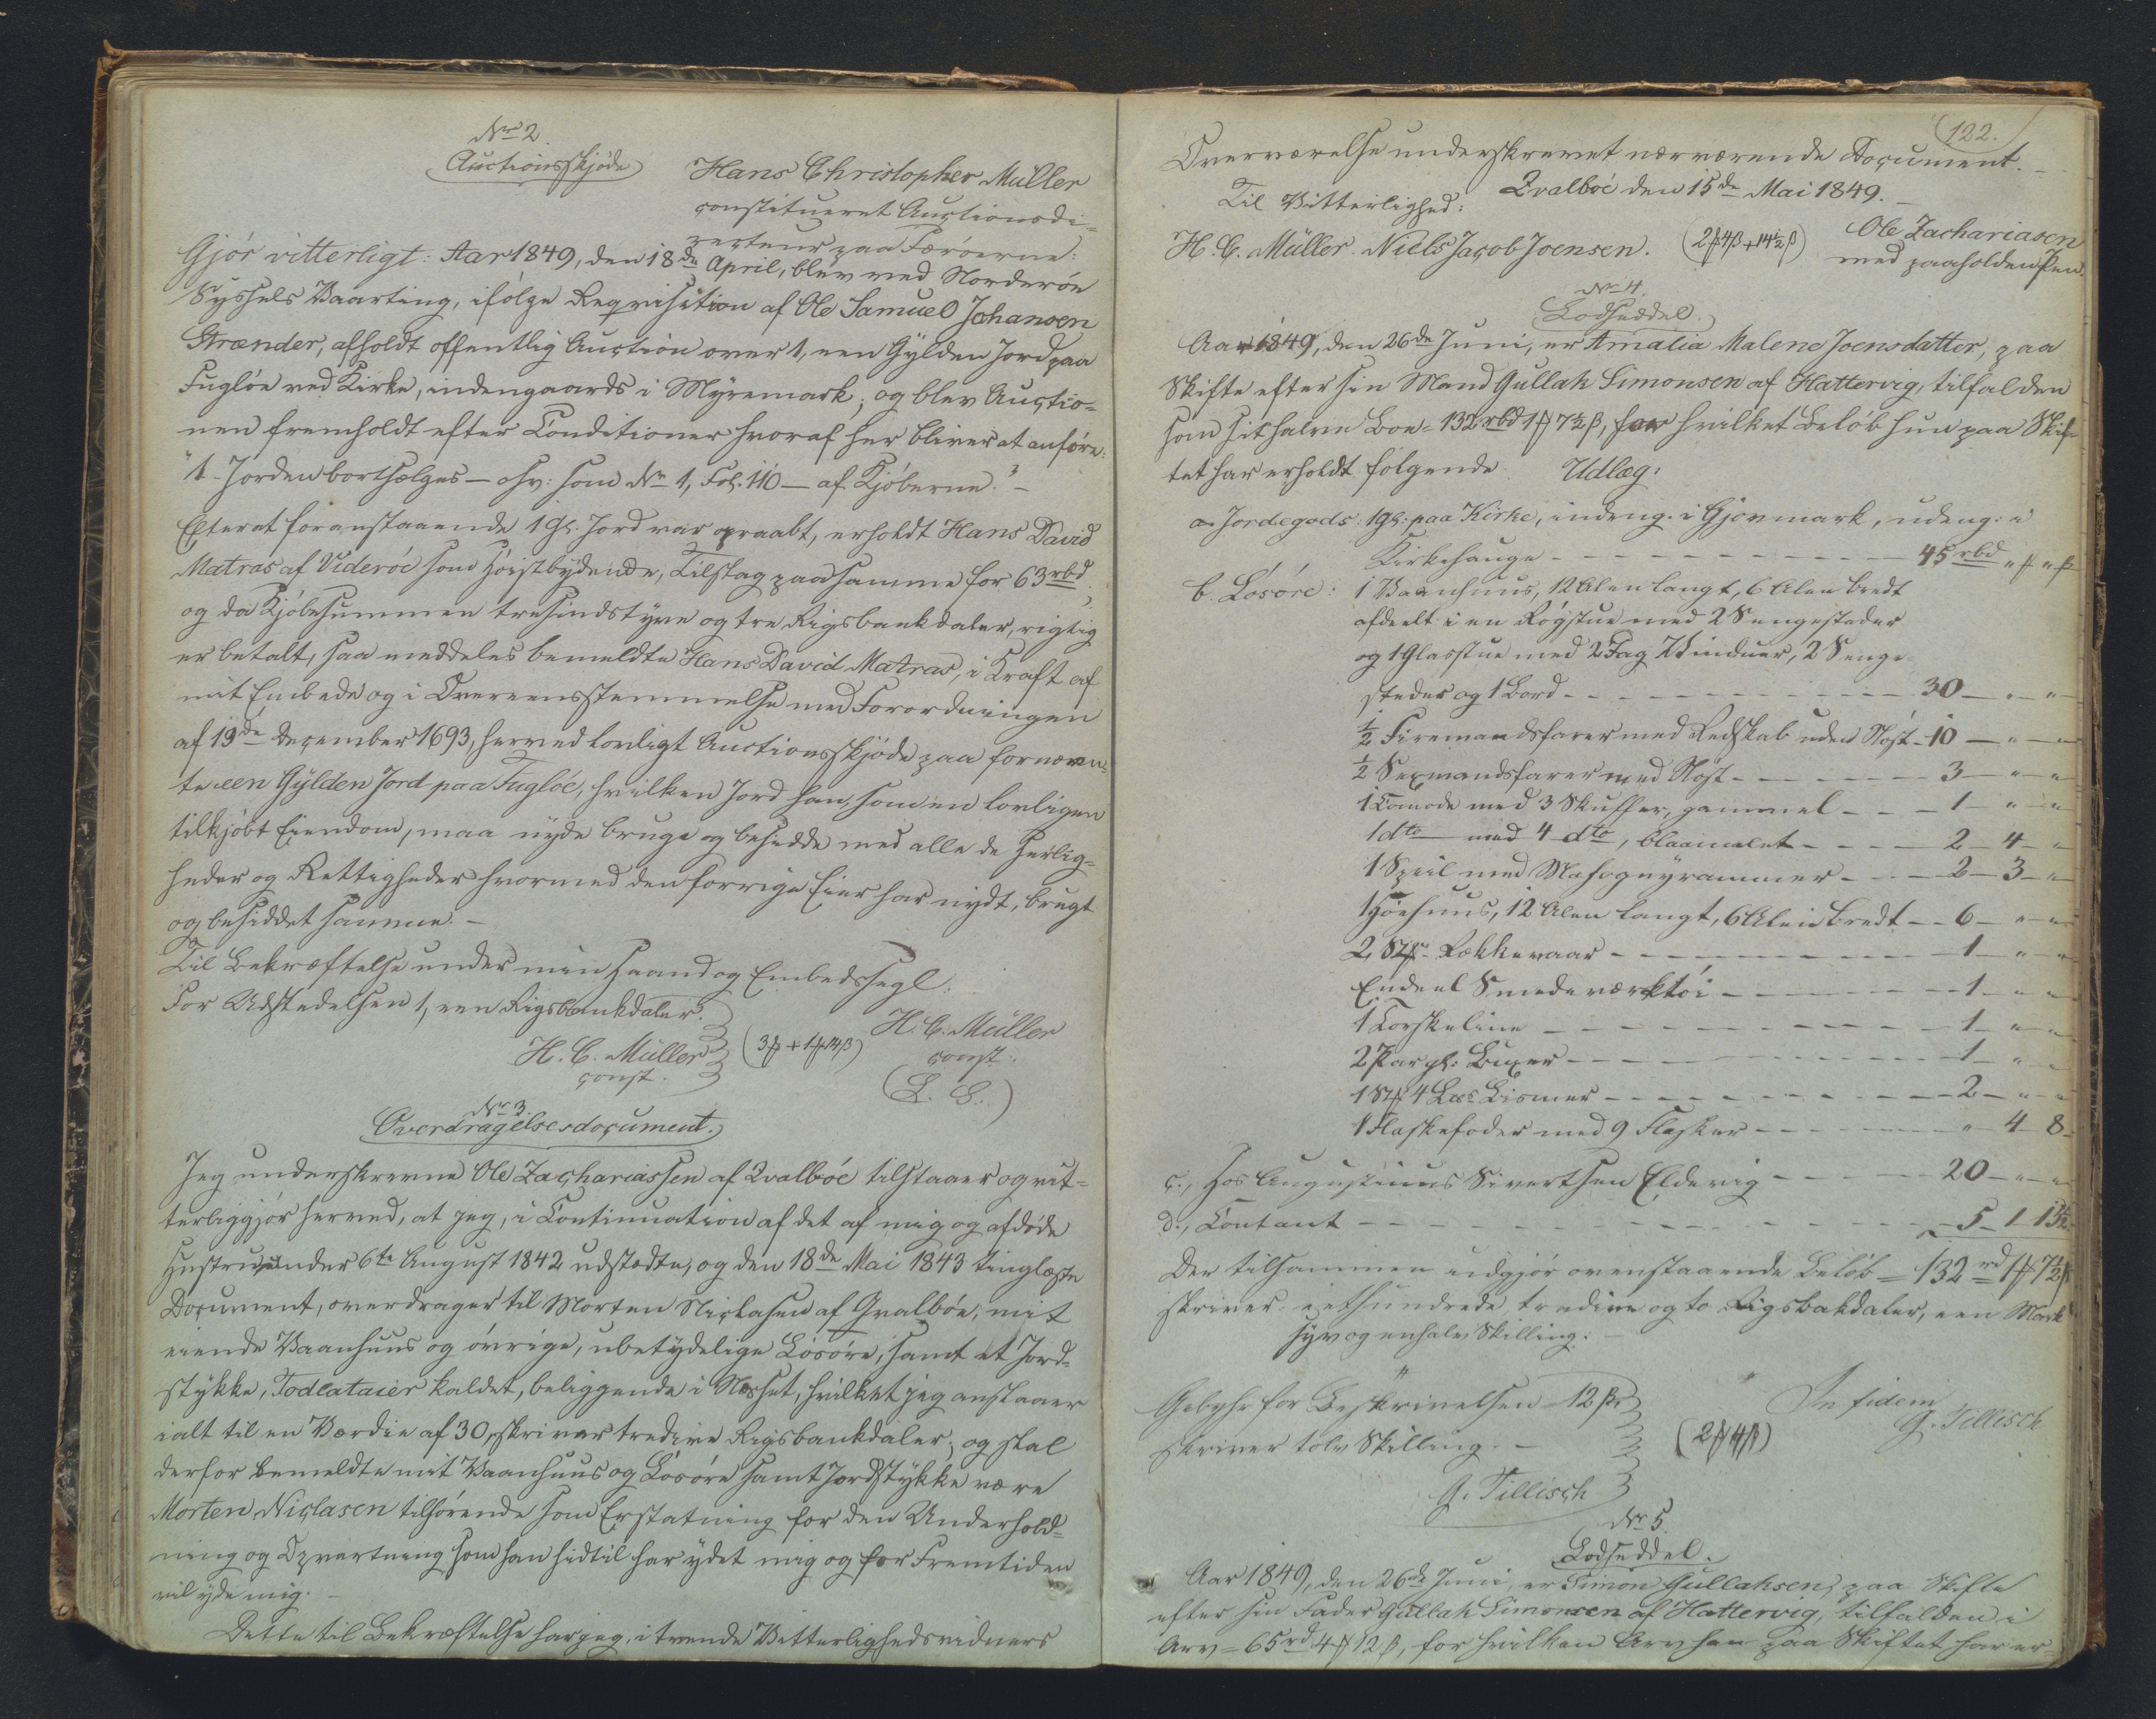 No 2.
Auctionsskjøde
Hans Christopher Müller
constitueret Auctionsdi-
recteur paa Færöerne:
Gjör vitterligt: Aar 1849, den 18de April, blev ved Norderöe
Syssels Vaarting, ifölge Reqvisition af Ole Samuel Johansen
Strænder, afholdt offentlig Auction over 1, een Gylden Jord paa
Fuglöe ved Kirke, indengaards i Myremark; og blev Auctio-
nen fremholdt efter Conditioner hvoraf her bliver at anföre:
"1. Jorden bortsælges - osv: som No 1, Fol. 110 - af Kjöberne." -
Efterat foranstaaende 1 Gl. Jord var opraabt, erholdt Hans David
Matras af Videröe som Höistbydende, Tilslag paa samme for 63 rbd;
og da Kjöbesummen tresindstyve og tre Rigsbankdaler, rigtig
er betalt, saa meddeles bemeldte Hans David Matras, i Kraft af
mit Embede og i Overeensstemmelse med Forordningen
af 19de December 1693, herved lovligt Auctionsskjöde paa fornævn-
te een Gylden Jord paa Fuglöe, hvilken Jord han, som en lovligen
tilkjöbt Eiendom, maa nyde bruge og besidde med alle de Herlig-
heder og Rettigheder hvormed den forrige Eier har nydt, brugt
og besiddet samme. -
Til Bekræftelse under min Haand og Embedssegl.
For Udstedelsen 1, een Rigsbankdaler.
H. C. Müller
const.
(3 ℔ + 1 ℔ 14 β)
H. C. Müller
const:
(L. S.)
No 3.
Overdragelsesdocument.
Jeg underskrevne Ole Zachariassen af Qvalböe tilstaaer og vit-
terliggjör herved, at jeg, i Continuation af det af mig og afdöde
Hustru under 6te August 1842 udstedte, og den 18de Mai 1843 tinglæste
Document, overdrager til Morten Niclasen af Qvalböe, mit
eiende Vaanhuus og övrige, ubetydelige Lösöre, samt et Jord-
stykke, Todlataier kaldet, beliggende i Næsset, hvilket jeg anslaaer
ialt til en Værdie af 30, skriver tredive Rigsbankdaler; og skal
derfor bemeldte mit Vaanhuus og Lösöre samt Jordstykke være
Morten Niclasen tilhörende som Erstatning for den Underhold-
ning og Opvartning som han hidtil har ydet mig og for Fremtiden
vil yde mig. -
Dette til Bekræftelse har jeg, i tvende Vitterlighedsvidners
122.
Overværelse underskrevet nærværende Document. -
Qvalböe den 15de Mai 1849. -
Til Vitterlighed:
H. C. Müller. Niels Jacob Joensen. (2 ℔ 4 β + 14½ β)
Ole Zachariasen
med paaholden Pen.
No 4.
Lodseddel.
Aar 1849, den 26de Juni, er Amalia Malene Joensdatter, paa
Skifte efter sin Mand Gullak Simonsen af Hattervig, tilfalden
som sit halve Boe = 132 rbd 1 ℔ 7½ β, for hvilket Belöb hun paa Skif-
tet har erholdt følgende Udlæg:
a. Jordegods: 1 Gl: paa Kirke, indeng. i Gjovmark, udeng: i
Kirkehauge - 45 rbd " ℔ " β
b. Lösöre: 1 Vaanhuus, 12 Alen langt, 6 Alen bredt
afdeelt i en Rögstue med 2 Sengesteder
og 1 Glasstue med 2 Fag Vinduer, 2 Senge-
steder og 1 Bord - 30 - " - "
½ Firemandsfarer med Redskab uden Nöst - 10 - " - "
½ Sexmandsfarer med Nöst - 3 - " - "
1 Comode med 3 Skuffer, gammel - 1 - " - "
1 dto med 4 dto, blaamalet - 2 - 4 - "
1 Speil med Mahognyrammer - 2 - 3 - "
1 Höehuus, 12 Alen langt, 6 Alen bredt - 6 - " - "
2 Rækkevaar - 1 - " - "
Endeel Smedeværktöi - 1 - " - "
1 Torskeline - 1 - " - "
2 Par gl: Buxer - 1 - " - "
1 4 Bismer - 2 - " - "
1 Flaskefoder med 9 Flasker - " 4 8
c., Hos Augustinus Sivertsen Eldevig - 20 - " - "
d., Contant - 5 - 1 - 15½
Der tilsammen udgjör ovenstaaende Belöb = 132 rd 1 ℔ 7½ β
skriver: eethundrede, tredive og to Rigsbakdaler, een Mark
syv og en halv Skilling: -
Gebyhr for Beskrivelsen 12 β,
skriver tolv Skilling. -
G. Tillisch
(2 ℔ 4 β)
In fidem
G. Tillisch
No 5.
Lodseddel.
Aar 1849, den 26de Juni, er Simon Gullaksen, paa Skifte
efter sin Fader Gullak Simonsen af Hattervig, tilfalden i
Arv = 65 rd 4 ℔ 12 β, for hvilken Arv han paa Skiftet har er-